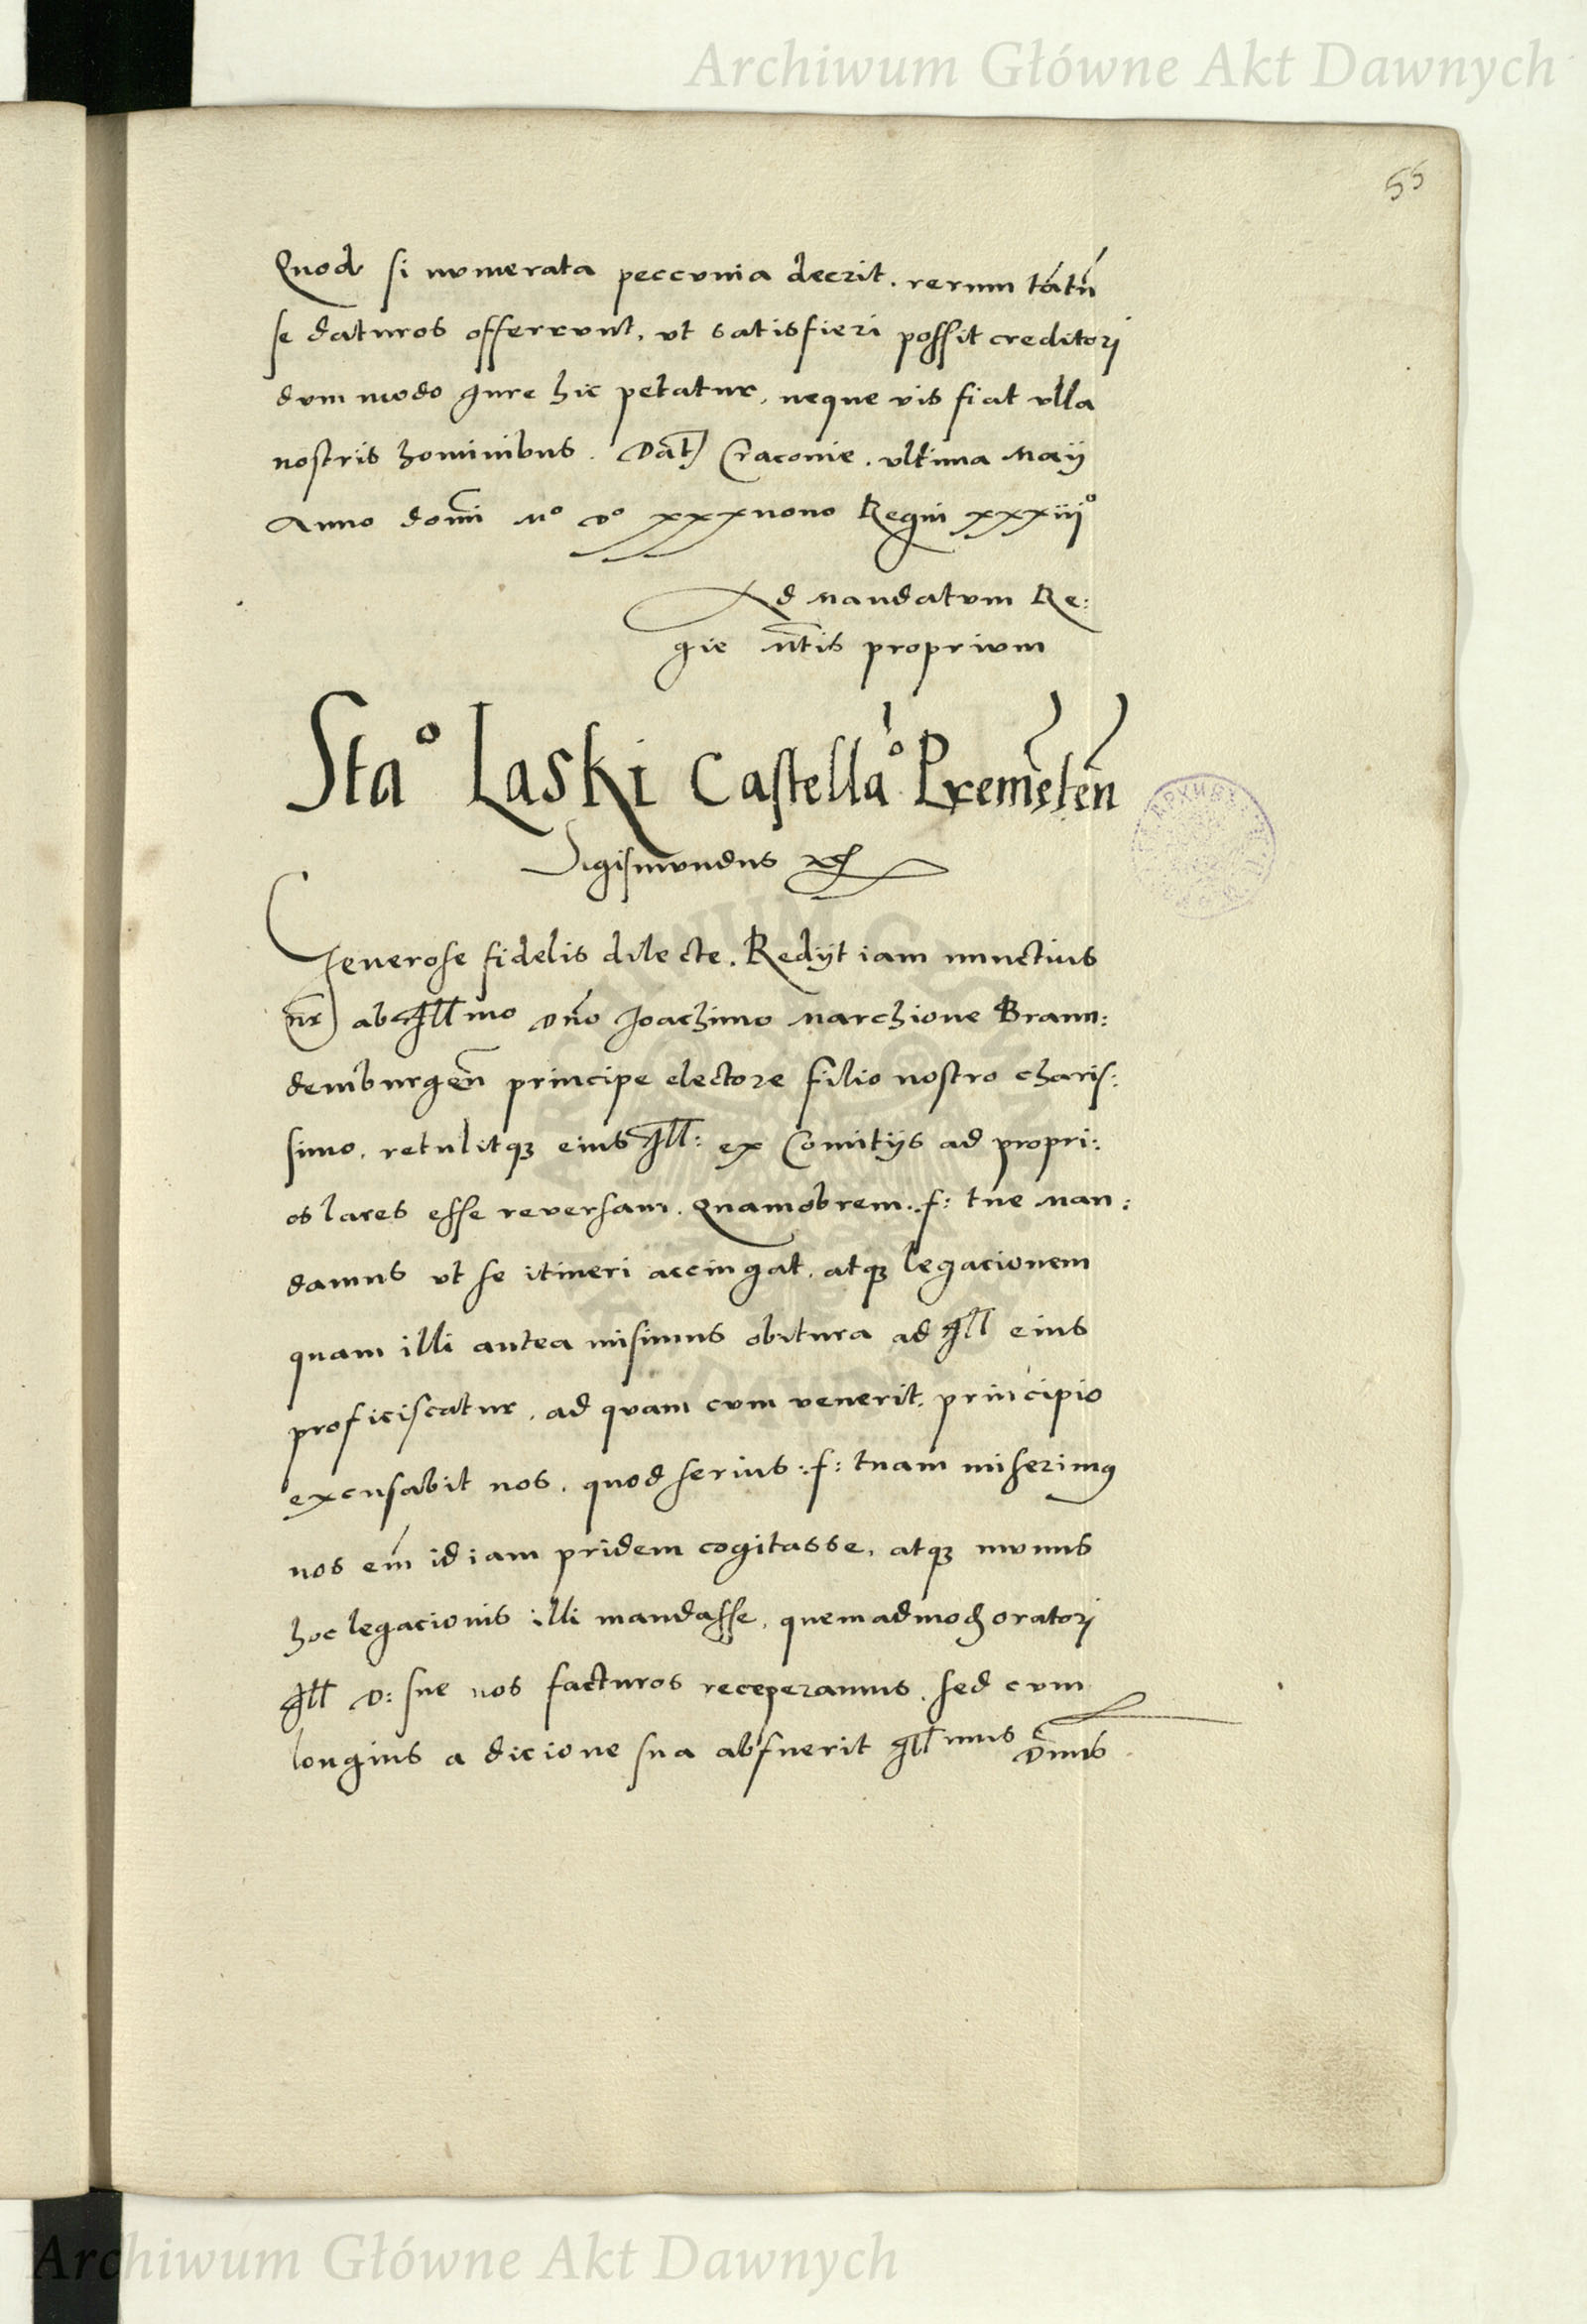 Archiwum Główne Akt Dawnych
55
Quod si numerata peccunia deerit. rerum tātū
se daturos offerrunt, ut satisfieri possit creditori
dummodo iure hic petatur, neque vis fiat ulla
nostris hominibus. Dat̄ Cracovie. ultima Maij
Anno domī Mº Dº xxxnono Regni xxxiijº
Ad Mandatum Re:
gie M̄tis proprium
Staº Laski Castellaº Premēteñ
Sigismundus
Generose fidelis dilecte. Redijt iam nunctius
nr̄ ab Illmo Dn̄o Joachimo Marchione Brann:
demburgeñ principe electore filio nostro charis:
simo, retulitqȝ eius Ill: ex Comitijs ad propri:
os lares esse reversam. Quamobrem .f: tue Man:
damus ut se itineri accingat, atqȝ legacionem
quam illi antea misimus obitura ad Ill eius
proficiscatur, ad quam cum venerit, principio
excusabit nos, quod serius :f: tuam miserimꝰ
nos em̄ id iam pridem cogitasse, atqȝ munus
hoc legacionis illi mandasse, quemadmod oratori
Ill D: sue nos facturos receperamus, sed cum
longius a dicione sua abfuerit Illmus Dn̄us
Archiwum Główne Akt Dawnych